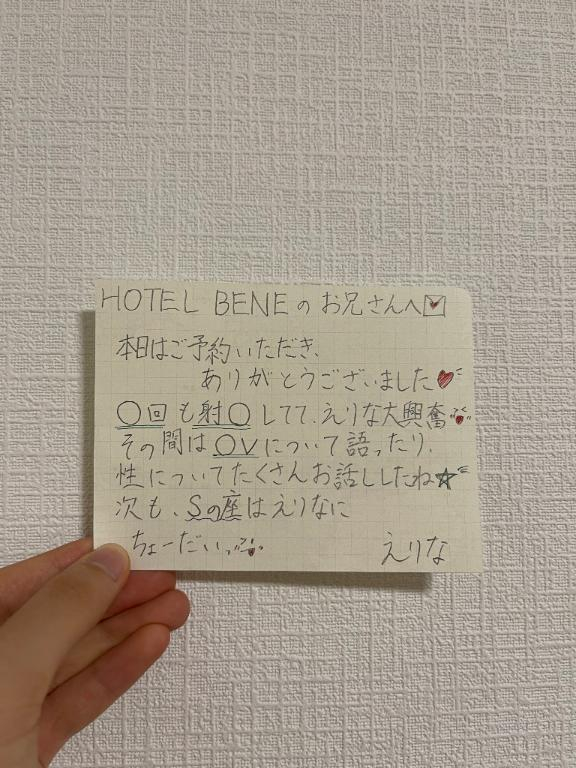 HOTEL BENEのお兄さんへ
本日はご予約いただき、
ありがとうございました
〇回も射〇してて、えりな大興奮
その間は〇Vについて語ったり、
性についてたくさんお話ししたね
次も、Sの座はえりなに
ちょーだいっ
えりな